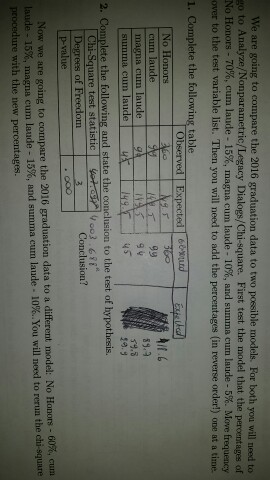 We are going to compare the 2016 graduation data to two possible models. For both you will need to
go to Analyze/Nonparametric/Legacy Dialogs/Chi-square. First test the model that the percentages of
No Honors - 70%, cum laude - 15%, magna cum laude - 10%, and summa cum laude - 5%. Move frequency
over to the test variable list. Then you will need to add the percentages (in reverse order!) one at a time.
1. Complete the following table
Observed Expected observed Expected
No Honors 360 149.5 360 418.6
cum laude 99 99 89.7
magna cum laude 94 94 59.8
summa cum laude 45 149.5 45 29.9
2. Complete the following and state the conclusion to the test of hypothesis.
Chi-Square test statistic
Degrees of Freedom 3 Conclusion?
p-value .000
Now we are going to compare the 2016 graduation data to a different model: No Honors - 60%, cum
laude - 15%, magna cum laude - 15%, and summa cum laude - 10%. You will need to rerun the chi-square
procedure with the new percentages.